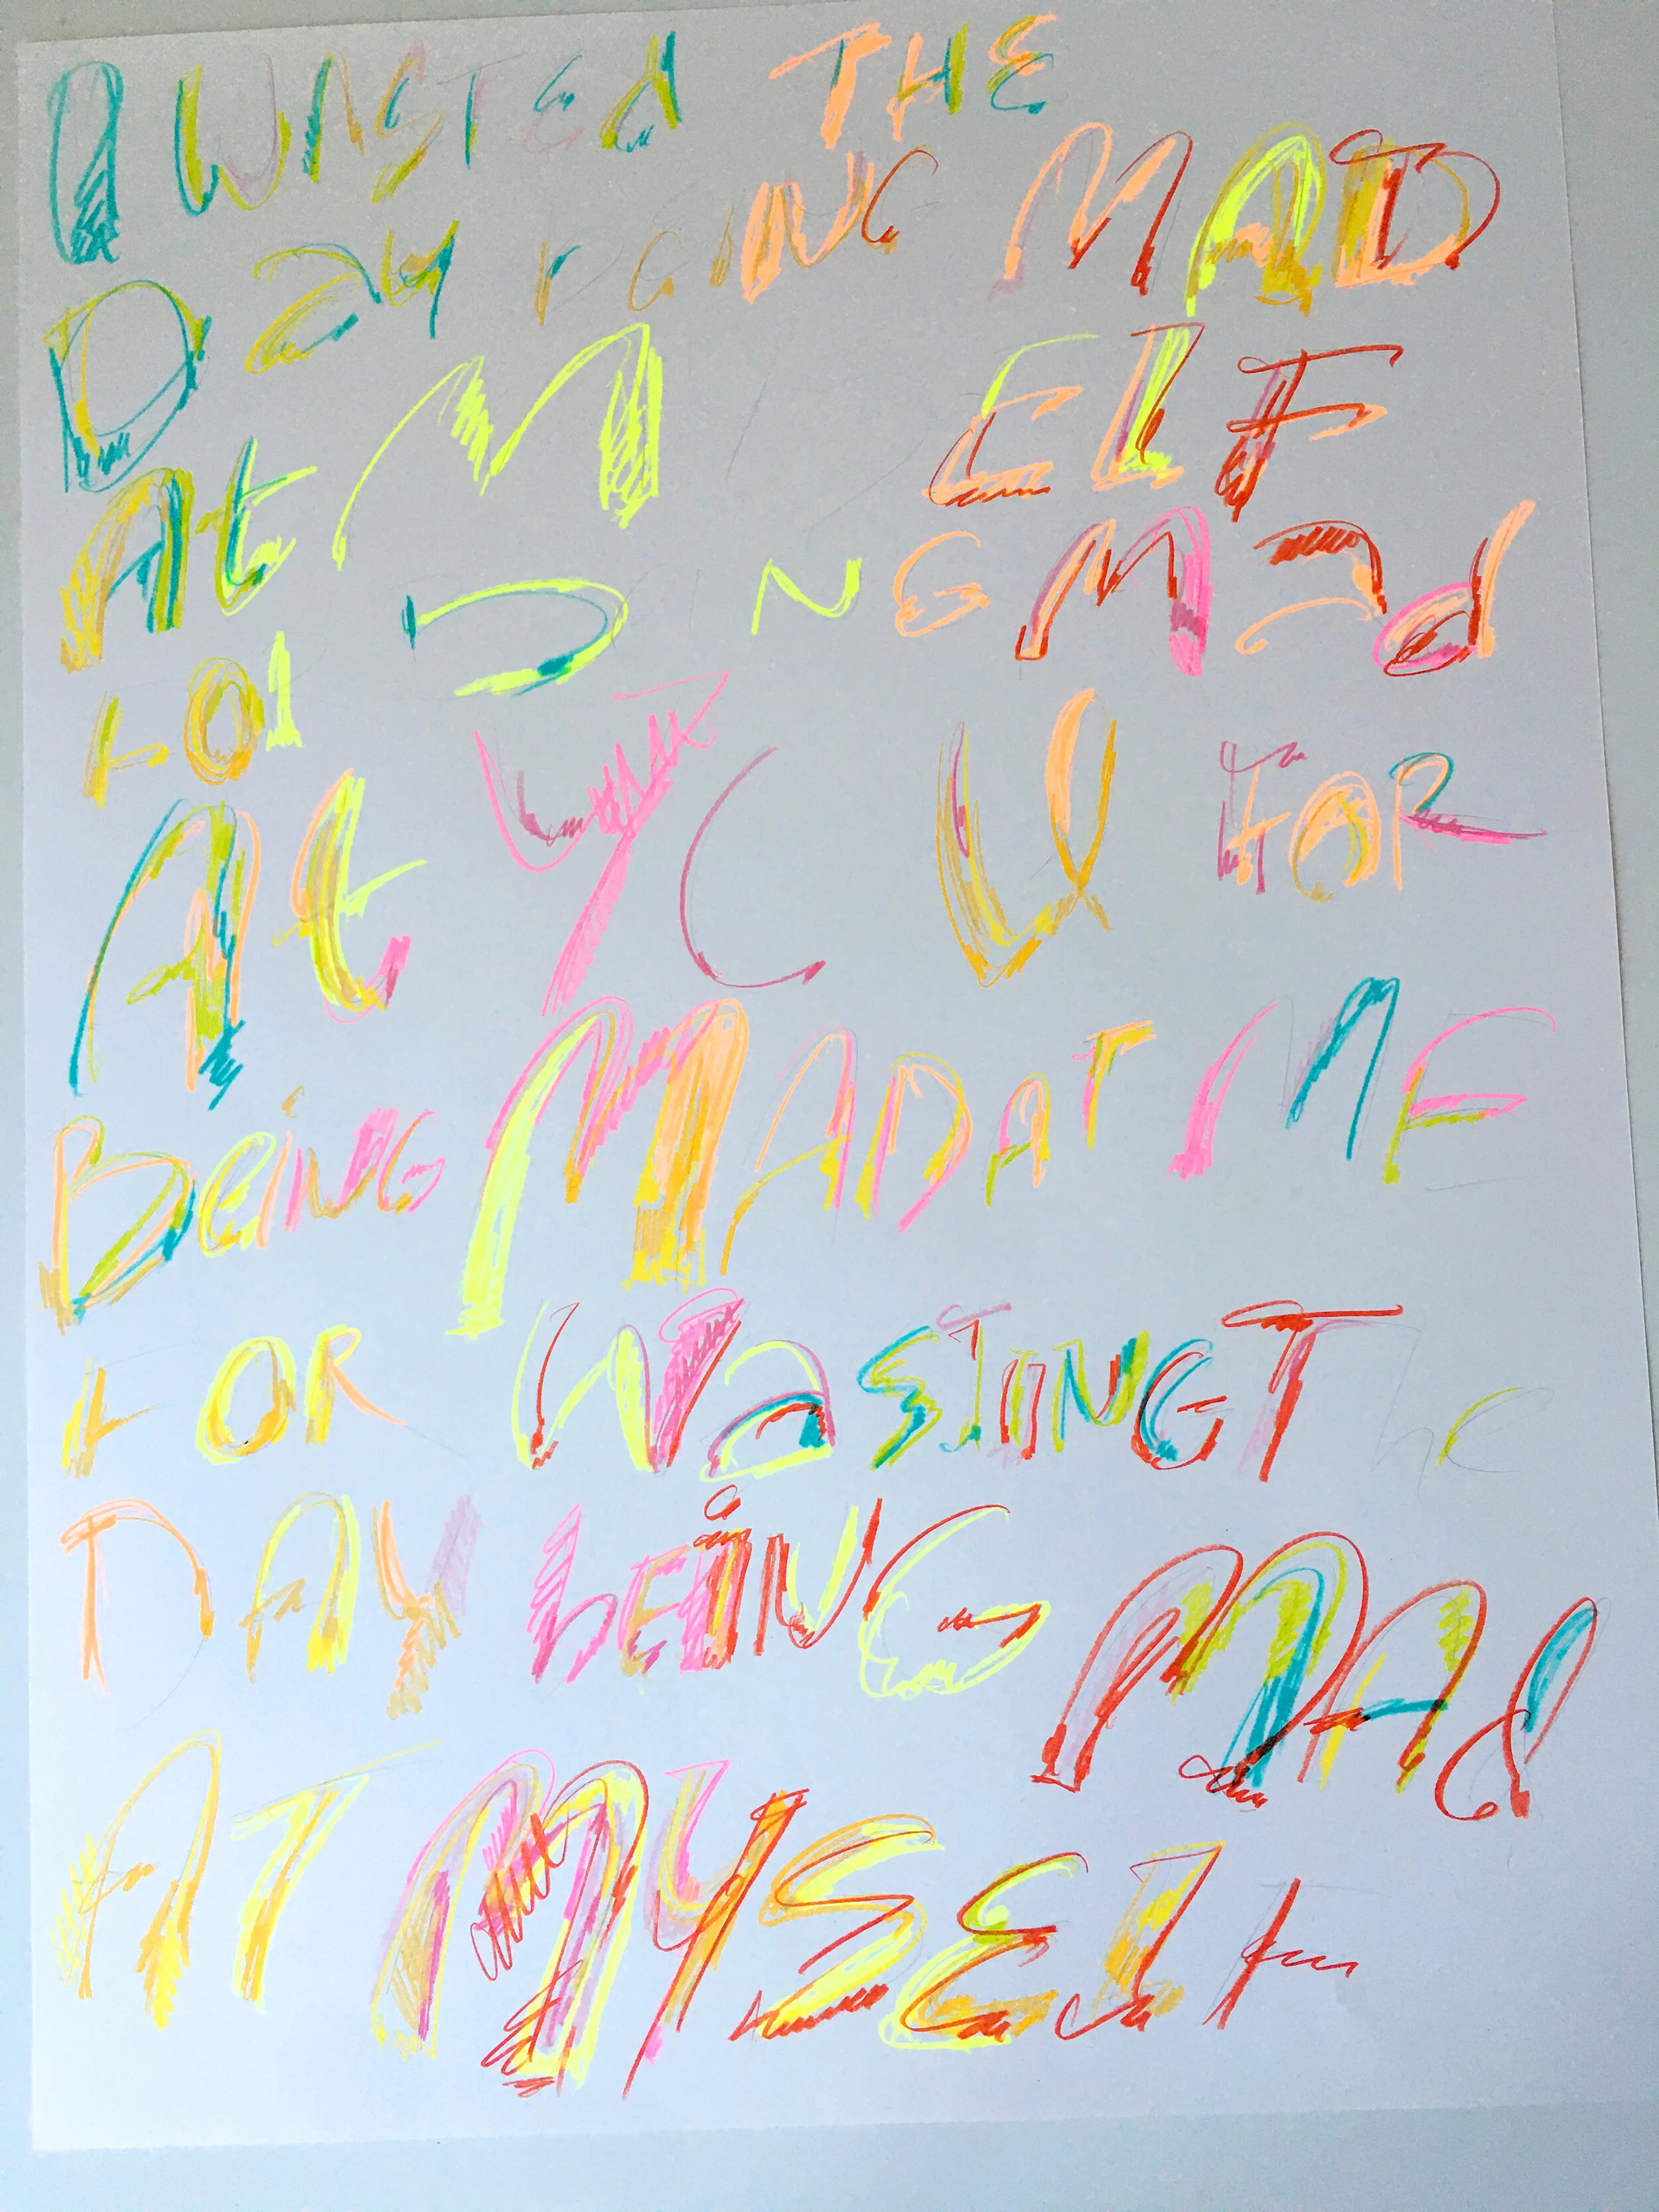 I WASTEd THE
Day BEING MAD
At MYSELF
FOR BEING Mad
At YOU FOR
BEiNG MAD AT ME
FOR WaSTING The
DAY bEiNG MAd
AT MYSELF